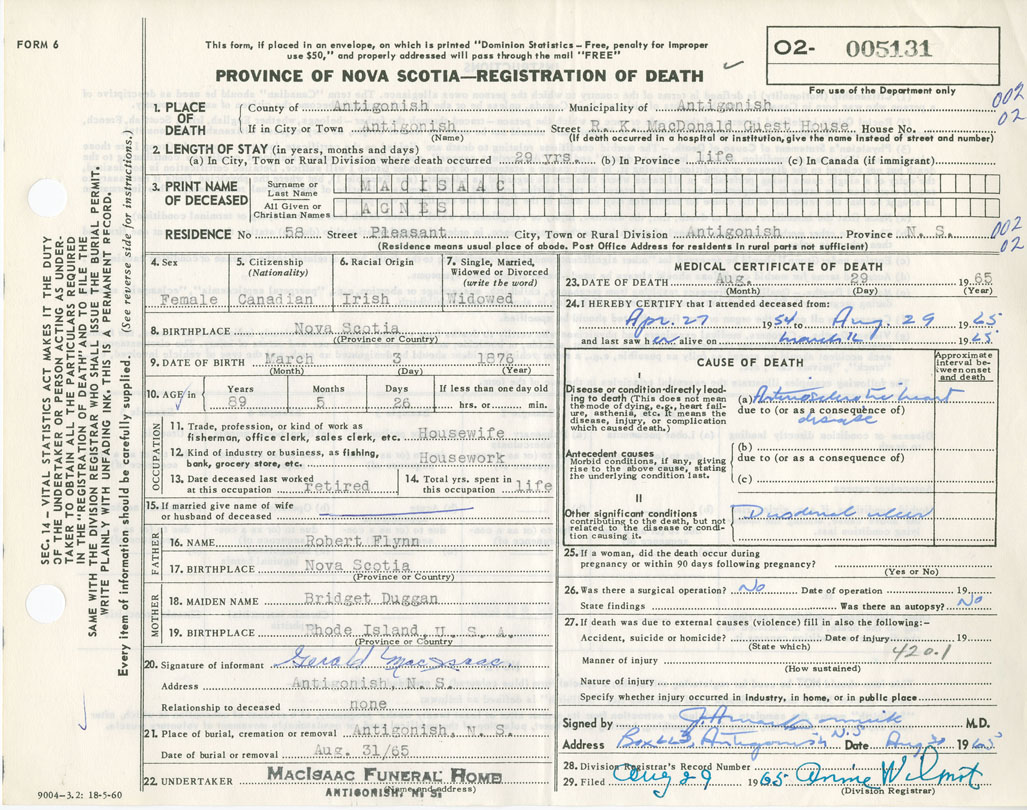 FORM 6
This form, if placed in an envelope, on which is printed "Dominion Statistics – Free, penalty for improper
use $50," and properly addressed will pass through the mail "FREE"
PROVINCE OF NOVA SCOTIA—REGISTRATION OF DEATH
02- 005131
For use of the Department only
002
02
1. PLACE OF DEATH
County of Antigonish Municipality of Antigonish
If in City or Town Antigonish Street R. K. MacDonald Guest House House No.
(Name) (If death occurred in a hospital or institution, give its name instead of street and number)
2. LENGTH OF STAY (in years, months and days)
(a) In City, Town or Rural Division where death occurred 29 yrs. (b) In Province life (c) in Canada (if immigrant)
3. PRINT NAME OF DECEASED
Surname or Last Name MACISAAC
All Given or Christian Names AGNES
RESIDENCE No 58 Street Pleasant City, Town or Rural Division Antigonish Province N. S.
(Residence means usual place of abode. Post Office Address for residents in rural parts not sufficient)
002
02
4. Sex
Female
5. Citizenship
(Nationality)
Canadian
6. Racial Origin
Irish
7. Single, Married,
Widowed or Divorced
(write the word)
Widowed
8. BIRTHPLACE Nova Scotia
(Province or Country)
9. DATE OF BIRTH March 3 1876
(Month) (Day) (Year)
10. AGE in
Years Months Days If less than one day old
89 5 26 hrs. or min.
OCCUPATION
11. Trade, profession, or kind of work as
fisherman, office clerk, sales clerk, etc. Housewife
12. Kind of industry or business, as fishing,
bank, grocery store, etc. Housework
13. Date deceased last worked
at this occupation retired
14. Total yrs. spent in
this occupation life
15. If married give name of wife
or husband of deceased
FATHER
16. NAME Robert Flynn
17. BIRTHPLACE Nova Scotia
(Province or Country)
MOTHER
18. MAIDEN NAME Bridget Duggan
19. BIRTHPLACE Rhode Island, U. S. A.
(Province or Country)
20. Signature of informant Gerald MacIsaac
Address Antigonish, N. S.
Relationship to deceased none
21. Place of burial, cremation or removal Antigonish, N. S.
Date of burial or removal Aug. 31/65
22. UNDERTAKER MACISAAC FUNERAL HOME
(Name and address)
ANTIGONISH, N. S.
9004–3.2: 18-5-60
MEDICAL CERTIFICATE OF DEATH
23. DATE OF DEATH Aug. 29 65
(Month) (Day) (Year)
24. I HEREBY CERTIFY that I attended deceased from:
Apr. 27 1954 to Aug. 29 1965
and last saw her alive on March 16 1965.
CAUSE OF DEATH
Approximate
interval be-
tween onset
and death
I
Disease or condition directly lead-
ing to death (This does not mean
the mode of dying, e.g., heart fail-
ure, asthenia, etc. It means the
disease, injury, or complication
which caused death.)
(a) Arteriosclerotic heart
due to (or as a consequence of)
disease
Antecedent causes
Morbid conditions, if any, giving
rise to the above cause, stating
the underlying condition last.
(b)
due to (or as a consequence of)
(c)
II
Other significant conditions
contributing to the death, but not
related to the disease or condi-
tion causing it.
Duodenal ulcer
25. If a woman, did the death occur during
pregnancy or within 90 days following pregnancy?
(Yes or No)
26. Was there a surgical operation? No Date of operation 19
State findings Was there an autopsy? No
27. If death was due to external causes (violence) fill in also the following:–
Accident, suicide or homicide? Date of injury 19
(State which)
420.1
Manner of injury
(How sustained)
Nature of injury
Specify whether injury occurred in industry, in home, or in public place
Signed by M.D.
Address Box 663, Antigonish N.S Date Aug 30 1965
28. Division Registrar's Record Number
29. Filed Aug 29 1965 Annie Wilmot
(Division Registrar)
SEC. 14 – VITAL STATISTICS ACT MAKES IT THE DUTY
OF THE UNDERTAKER OR PERSON ACTING AS UNDER-
TAKER "TO OBTAIN ALL THE PARTICULARS REQUIRED
IN THE "REGISTRATION OF DEATH" AND TO FILE THE
SAME WITH THE DIVISION REGISTRAR WHO SHALL ISSUE THE BURIAL PERMIT.
WRITE PLAINLY WITH UNFADING INK. THIS IS A PERMANENT RECORD.
Every item of information should be carefully supplied. (See reverse side for instructions.)